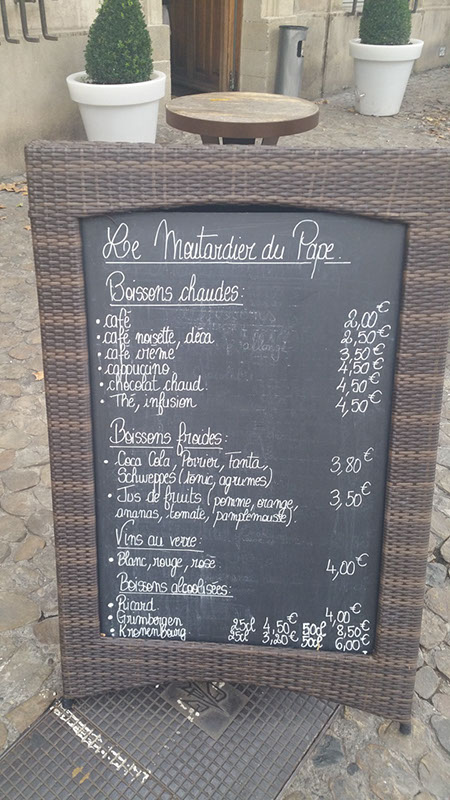 Le Moutardier du Pape.
Boissons chaudes:
• café 2,00€
• café noisette, déca 2,50€
• café crème 3,50€
• cappuccino 4,50€
• chocolat chaud. 4,50€
• Thé, infusion 4,50€
Boissons froides:
• Coca Cola, Perrier, Fanta,
Schweppes (tonic, agrumes) 3,80€
• Jus de fruits (pomme, orange,
ananas, tomate, pamplemousse). 3,50€
Vins au verre:
• Blanc, rouge, rosé 4,00€
Boissons alcoolisées:
• Ricard. 4,00€
• Grimbergen 25cl 4,50€ 50cl 8,50€
• Kronenbourg 25cl 3,20€ 50cl 6,00€